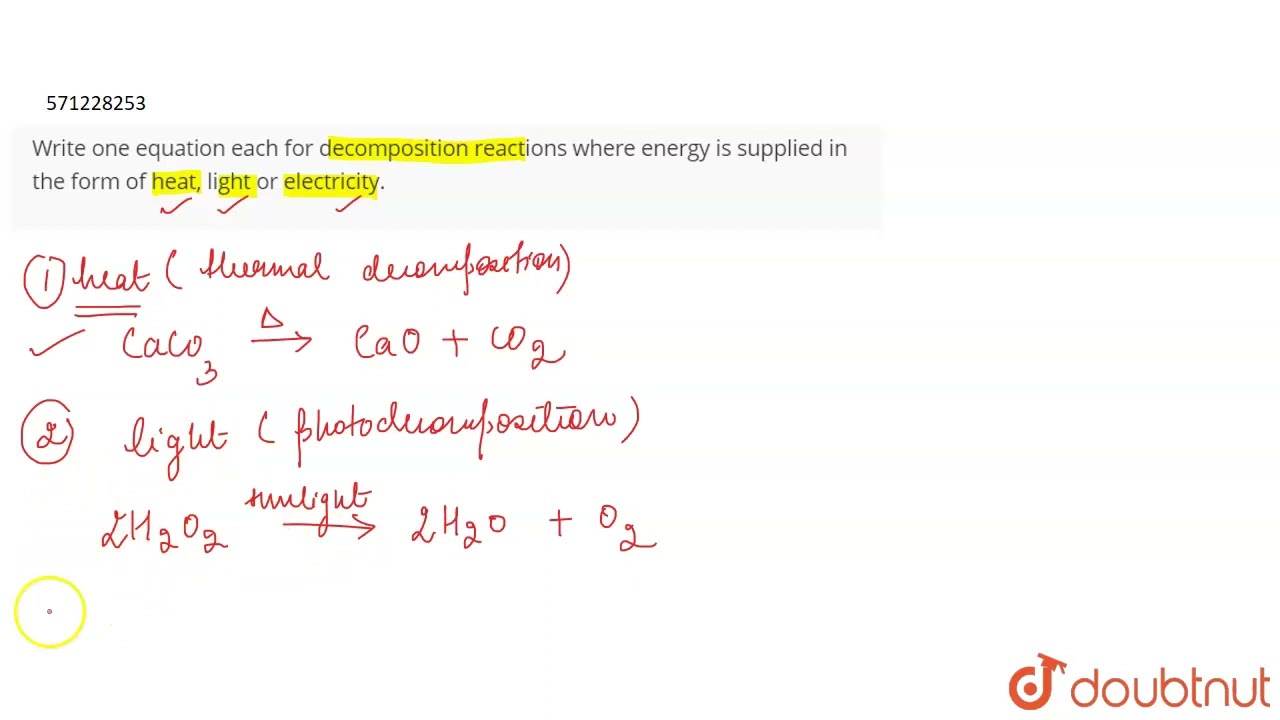 571228253
Write one equation each for decomposition reactions where energy is supplied in
the form of heat, light or electricity.
① heat (thermal decomposition)
CaCO₃ Δ→ CaO + CO₂
② light (photodecomposition)
2H₂O₂ sunlight→ 2H₂O + O₂
doubtnut